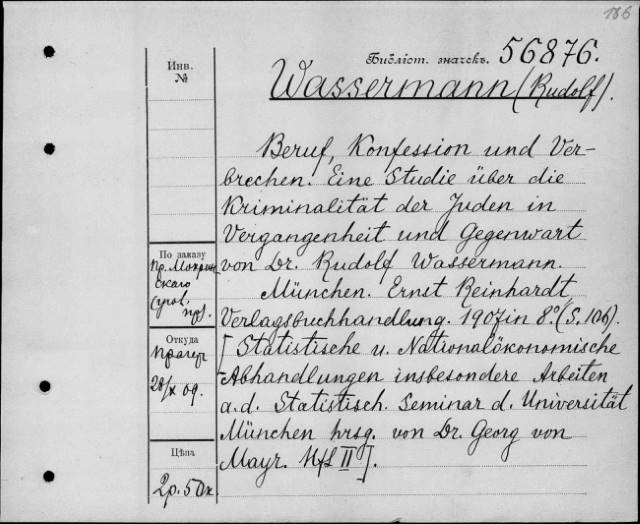 186
Библіот. значекъ. 56876.
Wassermann (Rudolf).
Инв.
№
Beruf, Konfession und Ver-
brechen. Eine Studie über die
Kriminalität der Juden in
Vergangenheit und Gegenwart
von Dr. Rudolf Wassermann.
München. Ernst Reinhardt
Verlagsbuchhandlung. 1907 in 8° (S. 106).
[Statistische u. Nationalökonomische
Abhandlungen insbesondere Arbeiten
a. d. Statistisch. Seminar d. Universität
München hrsg. von Dr. Georg von
Mayr. Hft II].
По заказу
пр.
скаго
Откуда
Прагер
28/X 09.
Цѣна
2р. 50к